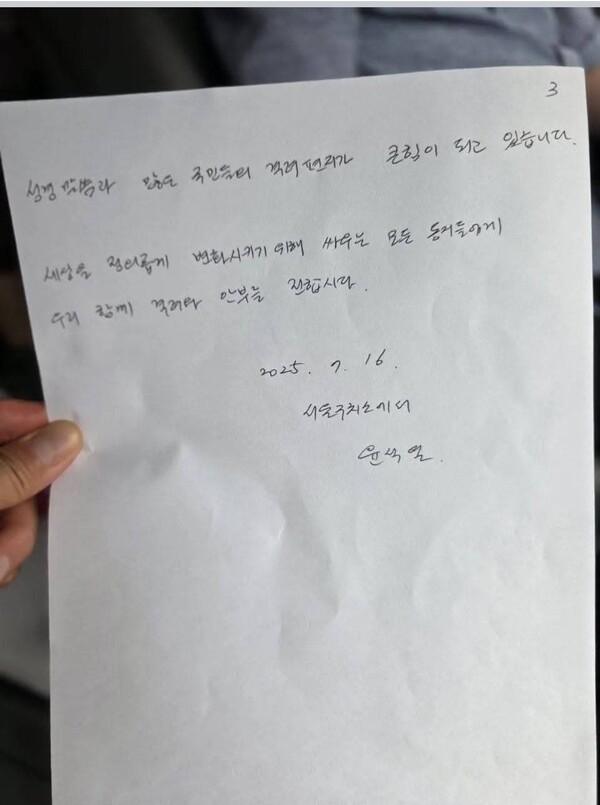 3
성경 말씀과 많은 국민들의 격려 편지가 큰 힘이 되고 있습니다.
세상을 정의롭게 변화시키기 위해 싸우는 모든 동지들에게
우리 함께 격려와 안부를 전합시다.
2025. 7. 16.
서울구치소에서
윤석열.